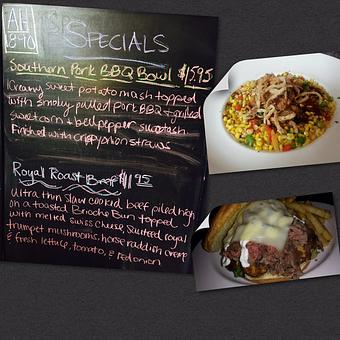 AH
890
SPECIALS
Southern Pork BBQ Bowl $15.95
Creamy sweet potato mash topped
with smokey pulled pork BBQ & grilled
sweet corn & bell pepper succotash
Finished with crispy onion straws
Royal Roast Beef $11.95
Ultra thin slow cooked beef piled high
on a toasted Brioche Bun topped
with melted swiss cheese, sauteed royal
trumpet mushrooms, horse raddish creme
& fresh lettuce, tomato, & red onion